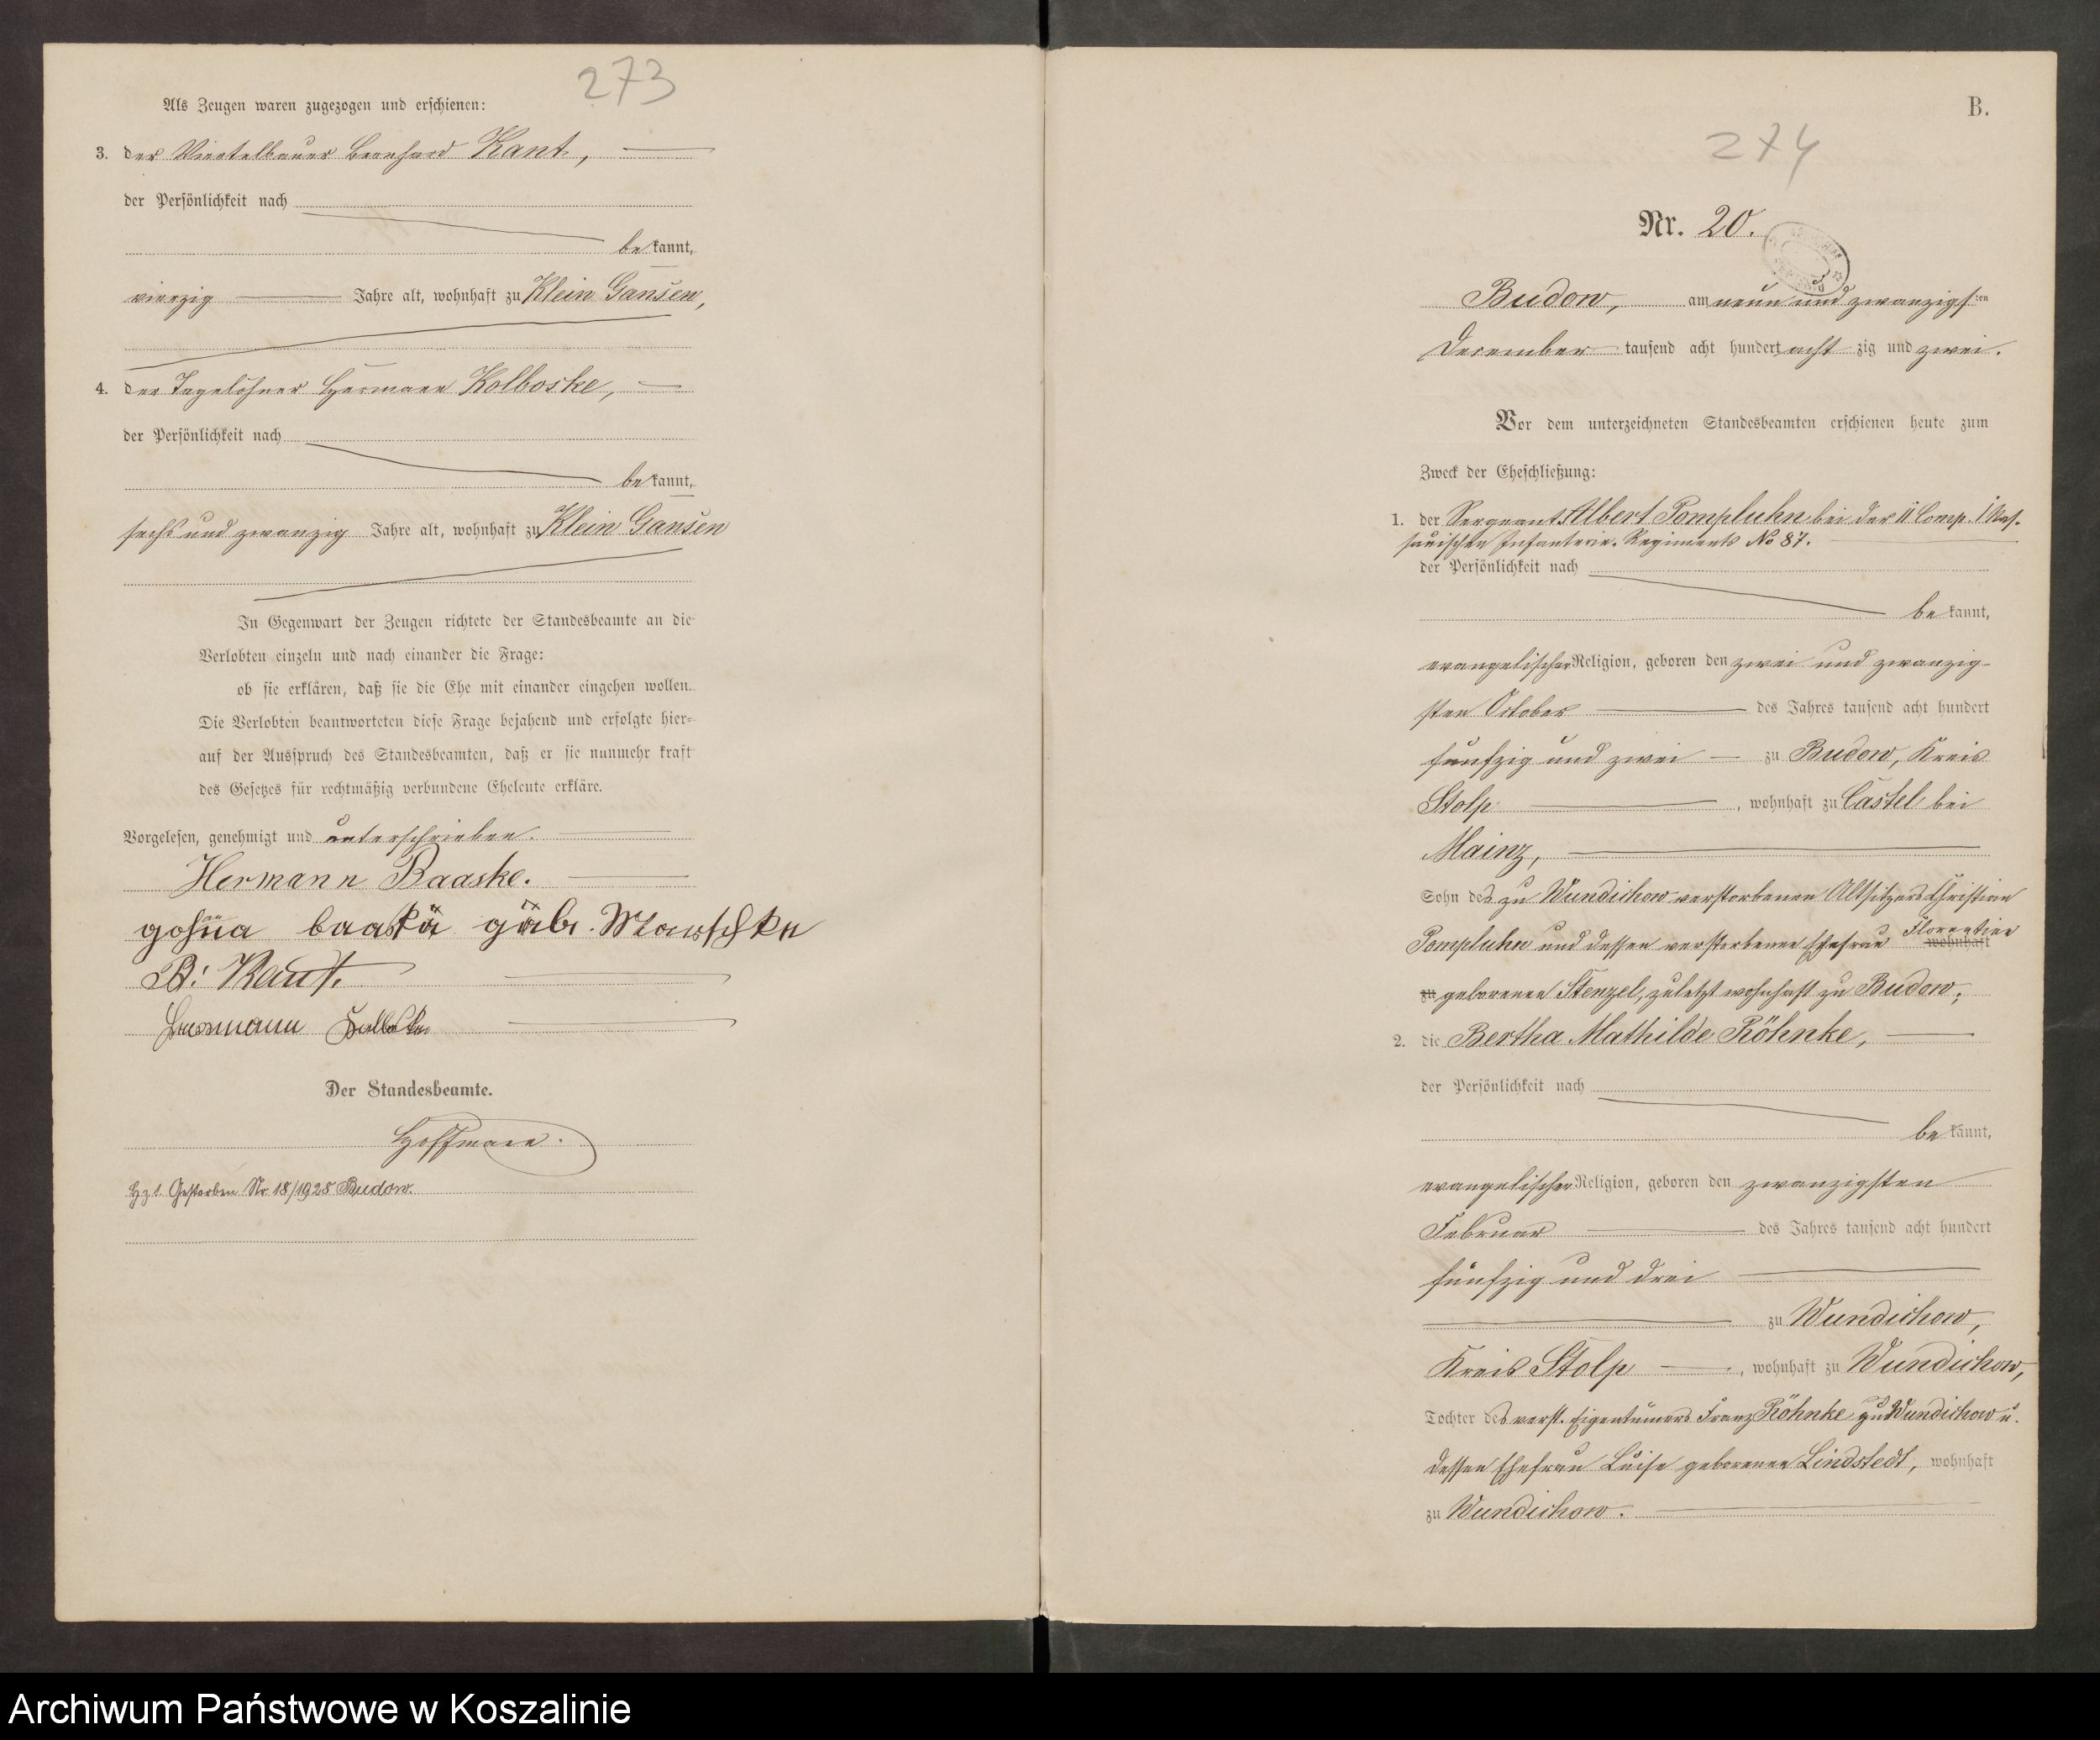 273
Als Zeugen waren zugezogen und erschienen:
3. der Viertelbauer Bernhard Kant,
der Persönlichkeit nach
be kannt,
vierzig Jahre alt, wohnhaft zu Klein Gansen,
4. der Tagelöhner Hermann Kolboske,
der Persönlichkeit nach
be kannt,
sechs und zwanzig Jahre alt, wohnhaft zu Klein Gansen
In Gegenwart der Zeugen richtete der Standesbeamte an die
Verlobten einzeln und nach einander die Frage:
ob sie erklären, daß sie die Ehe mit einander eingehen wollen.
Die Verlobten beantworteten diese Frage bejahend und erfolgte hier-
auf der Ausspruch des Standesbeamten, daß er sie nunmehr kraft
des Gesetzes für rechtmäßig verbundene Eheleute erkläre.
Vorgelesen, genehmigt und unterschrieben.
Hermann Baaske.
baaskä gäb. Marschke
B. Kant.
Hermann Kolboske
Der Standesbeamte.
Hoffmann.
Hz 1. Gestorben Nr. 18/1928 Budow.
B.
274
Nr. 20.
Budow, am neun und zwanzigsten
December tausend acht hundert acht zig und zwei.
Vor dem unterzeichneten Standesbeamten erschienen heute zum
Zweck der Eheschließung:
1. der Sergeant Albert Pompluhn bei der 11 Comp. 1 Nas-
sauischen Infanterie-Regiments No 87.
der Persönlichkeit nach
be kannt,
evangelischer Religion, geboren den zwei und zwanzig-
sten October des Jahres tausend acht hundert
fünfzig und zwei zu Budow, Kreis
Stolp, wohnhaft zu Castel bei
Mainz,
Sohn des zu Wundichow verstorbenen Altsitzers Christian
Pompluhn und dessen verstorbenen Ehefrau Florentine wohnhaft
zu geborenen Stenzel, zuletzt wohnhaft zu Budow;
2. die Bertha Mathilde Röhnke,
der Persönlichkeit nach
be kannt,
evangelischer Religion, geboren den zwanzigsten
Februar des Jahres tausend acht hundert
fünfzig und drei
zu Wundichow,
Kreis Stolp, wohnhaft zu Wundichow,
Tochter des verst. Eigentümers Franz Röhnke zu Wundichow u.
dessen Ehefrau Luise geborenen Lindstedt, wohnhaft
zu Wundichow.
Archiwum Państwowe w Koszalinie